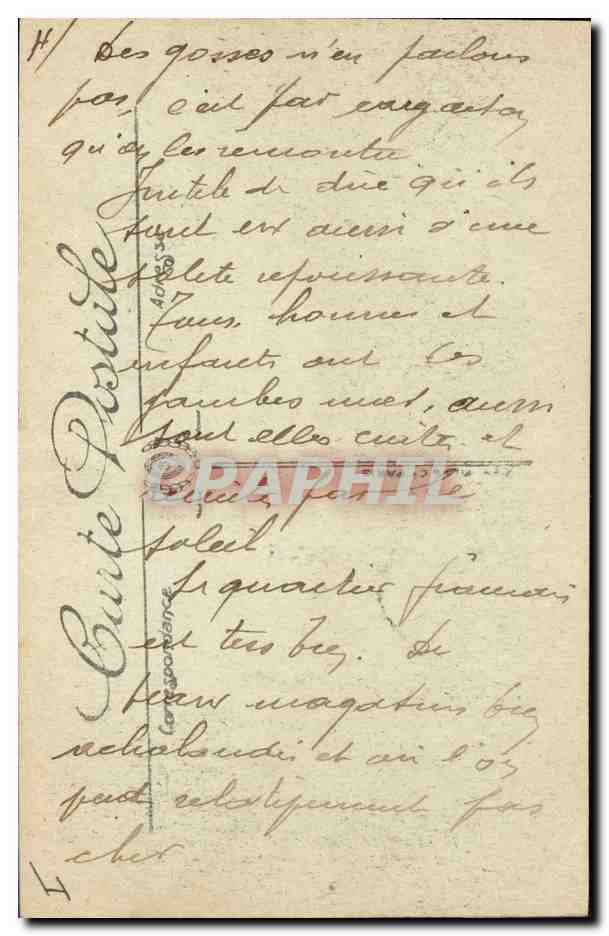 4/ Des gosses n'en parlons
pas, c'est par
qu'on les rencontre
Inutile de dire qu'ils
sont eux aussi d'une
saleté repoussante.
Tous, hommes et
enfants ont les
jambes nues, aussi
sont elles cuites et
par le
soleil.
Le quartier français
est très bien. De
beaux magasins bien
achalandés et où l'on
peut relativement pas
cher.
Carte Postale
Adresse
Correspondance
CPAPHIL